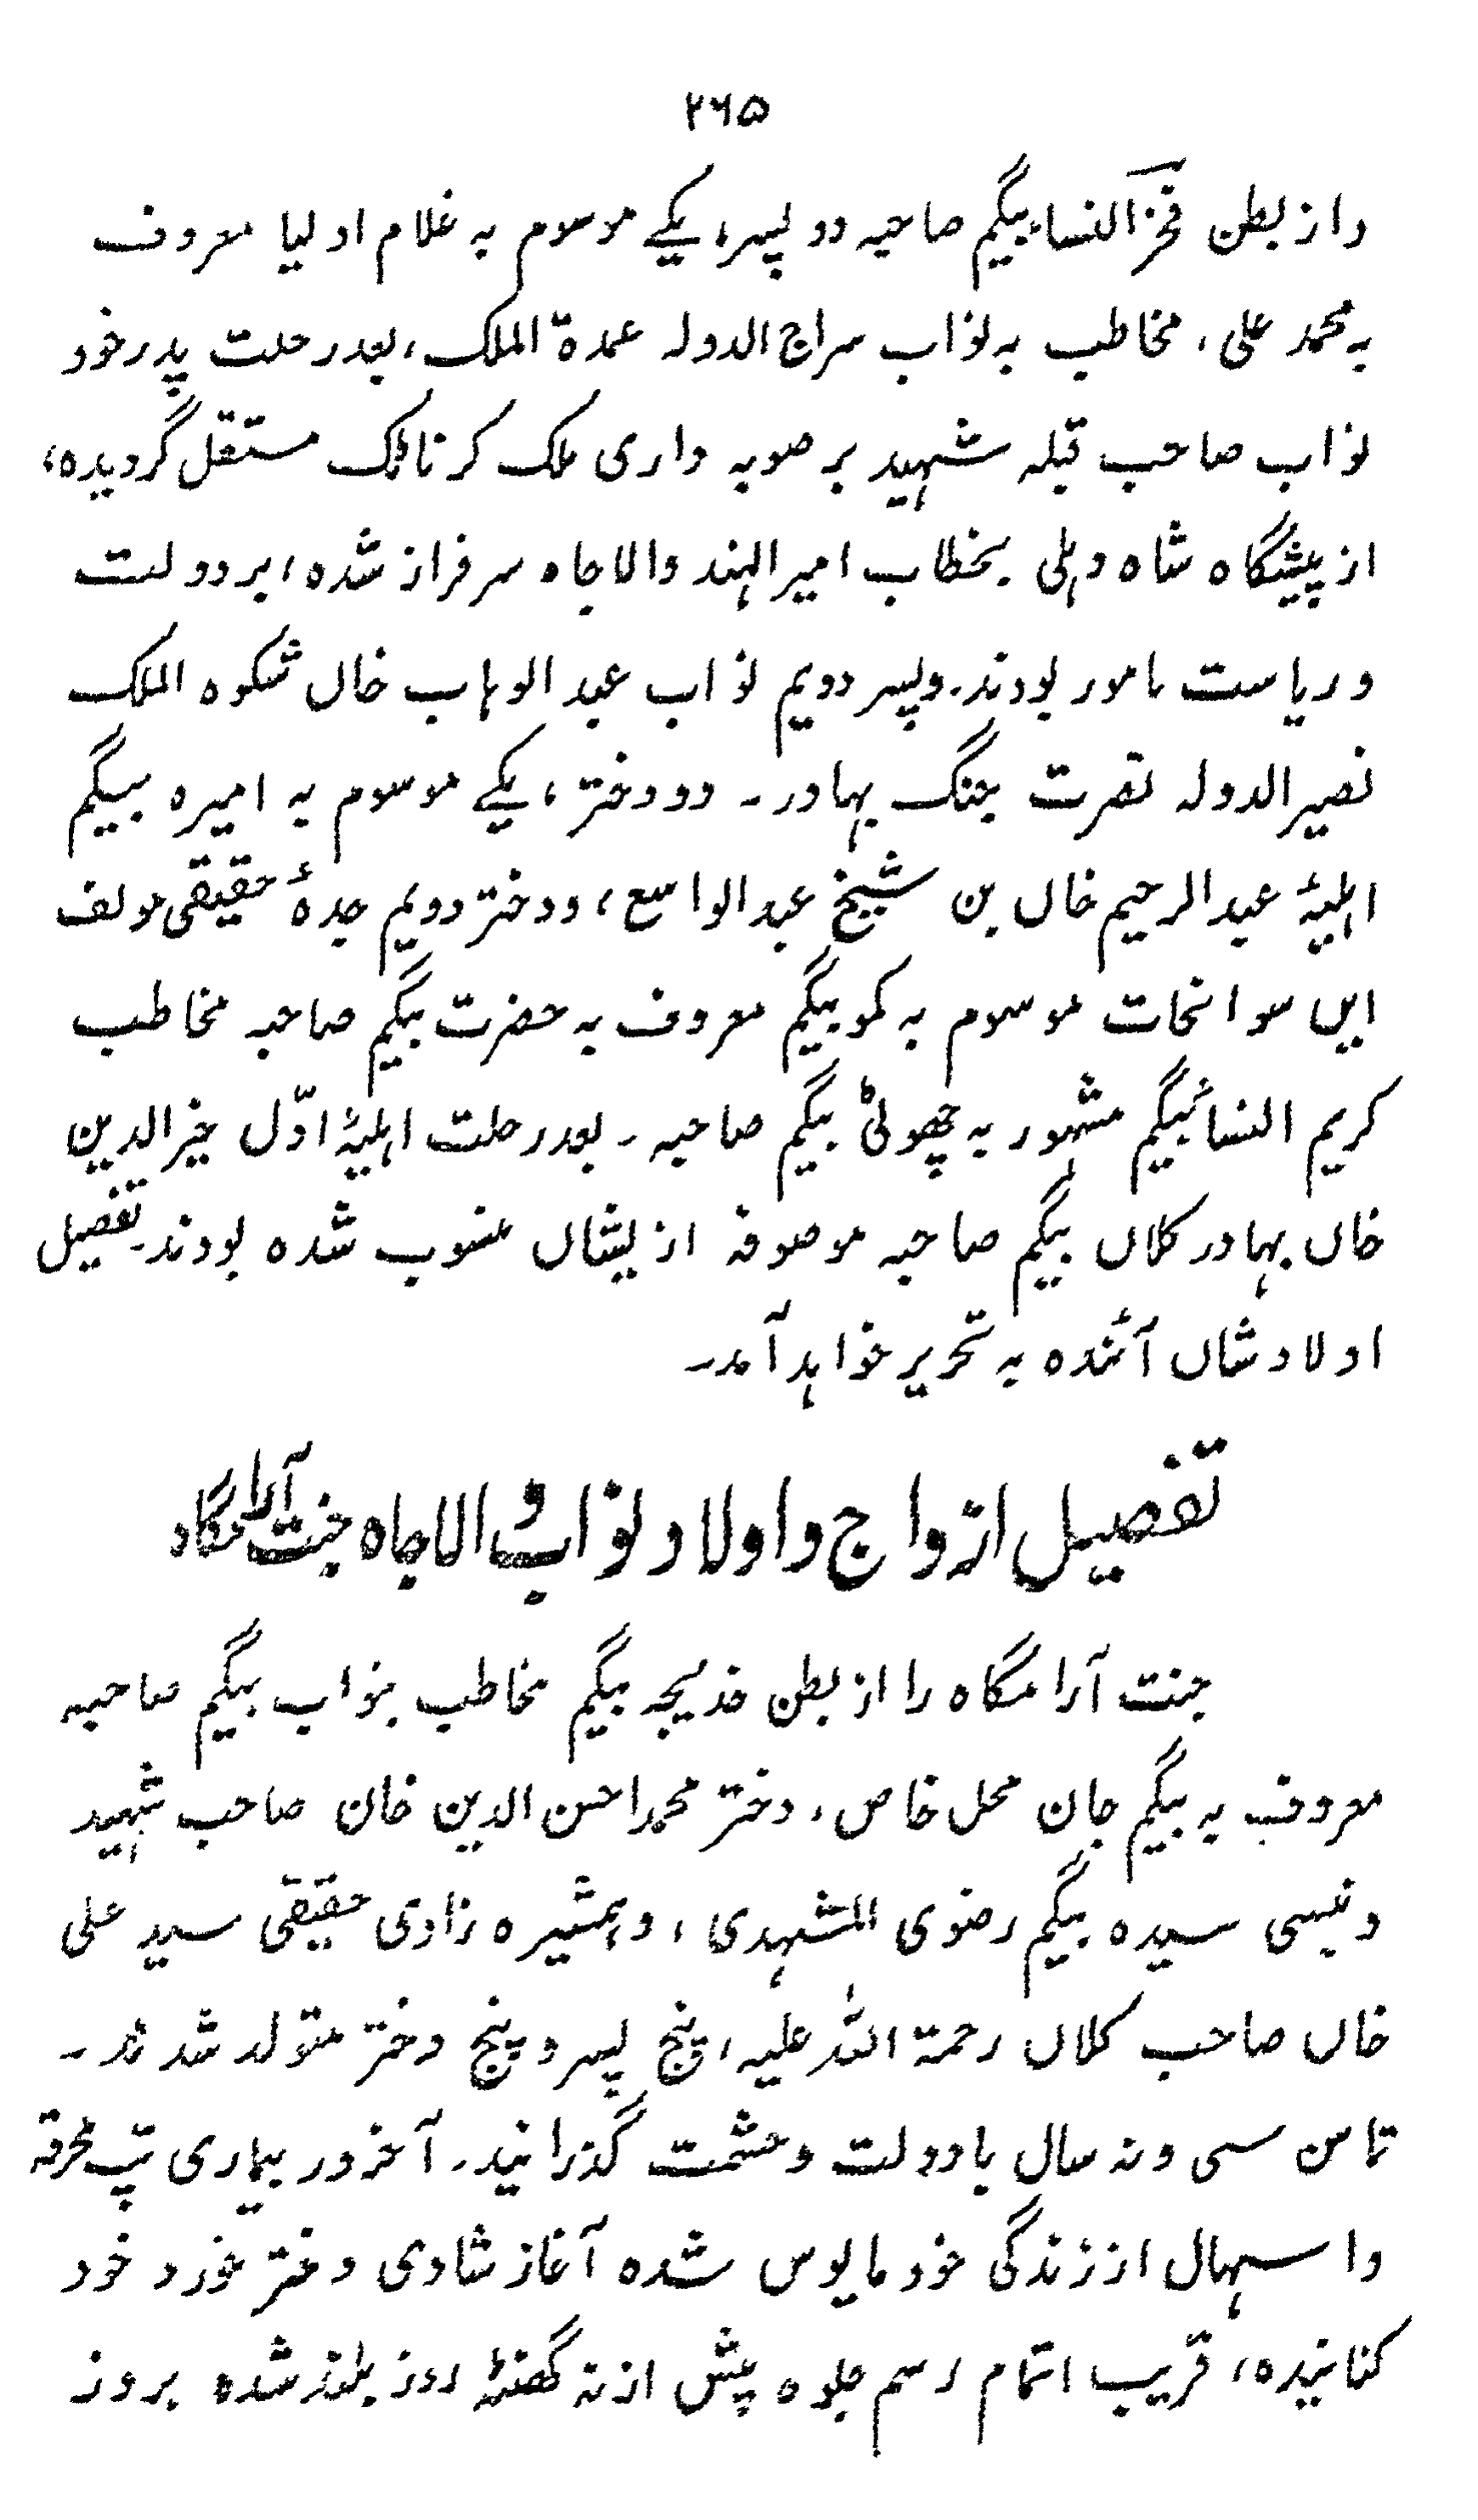 ۲۶۵
واز بطن فخرالنساء بیگم صاحبہ دو پسر، یکے موسوم بہ غلام اولیا معروف
بہ محمد علی، مخاطب بہ نواب سراج الدولہ عمدة الملک، بعد رحلت پدر خود
نواب صاحب قبلہ شہید بر صوبہ داری ملک کرناٹک مستقل گردیدہ،
از پیشگاہ شاہ دہلی بخطاب امیر الہند والاجاہ سرفراز شدہ، بر دولت
و ریاست مامور بودند۔ وپسر دویم نواب عبد الوہاب خاں شکوہ الملک
نصیر الدولہ نصرت جنگ بہادر۔ دو دختر، یکے موسوم بہ امیرہ بیگم
اہلیۂ عبدالرحیم خاں بن شیخ عبدالواسع، ودختر دویم جدۂ حقیقی مولف
ایں سوانحات موسوم بہ کمو بیگم معروف بہ حضرت بیگم صاحبہ مخاطب
کریم النساء بیگم مشہور بہ چھوٹی بیگم صاحبہ۔ بعد رحلت اہلیۂ اوّل خیرالدین
خاں بہادر کلاں بیگم صاحبہ موصوفہ ازیشاں منسوب شدہ بودند۔ تفصیل
اولاد شاں آئندہ بہ تحریر خواہد آمد۔
تفصیل ازواج و اولاد نواب والاجاہ جنت آرامگاہ
جنت آرامگاہ را از بطن خدیجہ بیگم مخاطب بنواب بیگم صاحبہ
معروف بہ بیگم جان محل خاص، دختر محمد احسن الدین خان صاحب شہید
و نبسی سیدہ بیگم رضوی المشہدی، وہمشیرہ زادی حقیقی سید علی
خاں صاحب کلاں رحمة اللہ علیہ، پنج پسر و پنج دختر متولد شدند۔
تا سن سی ونہ سال با دولت وحشمت گذرانید۔ آخر در بیماری تپ محرقہ
واسہال از زندگی خود مایوس شدہ آغاز شادی دختر خورد خود
کنانیدہ، قریب اتمام رسم جلوہ پیش از نہ گھنٹۂ روز بلند شدہ بروز